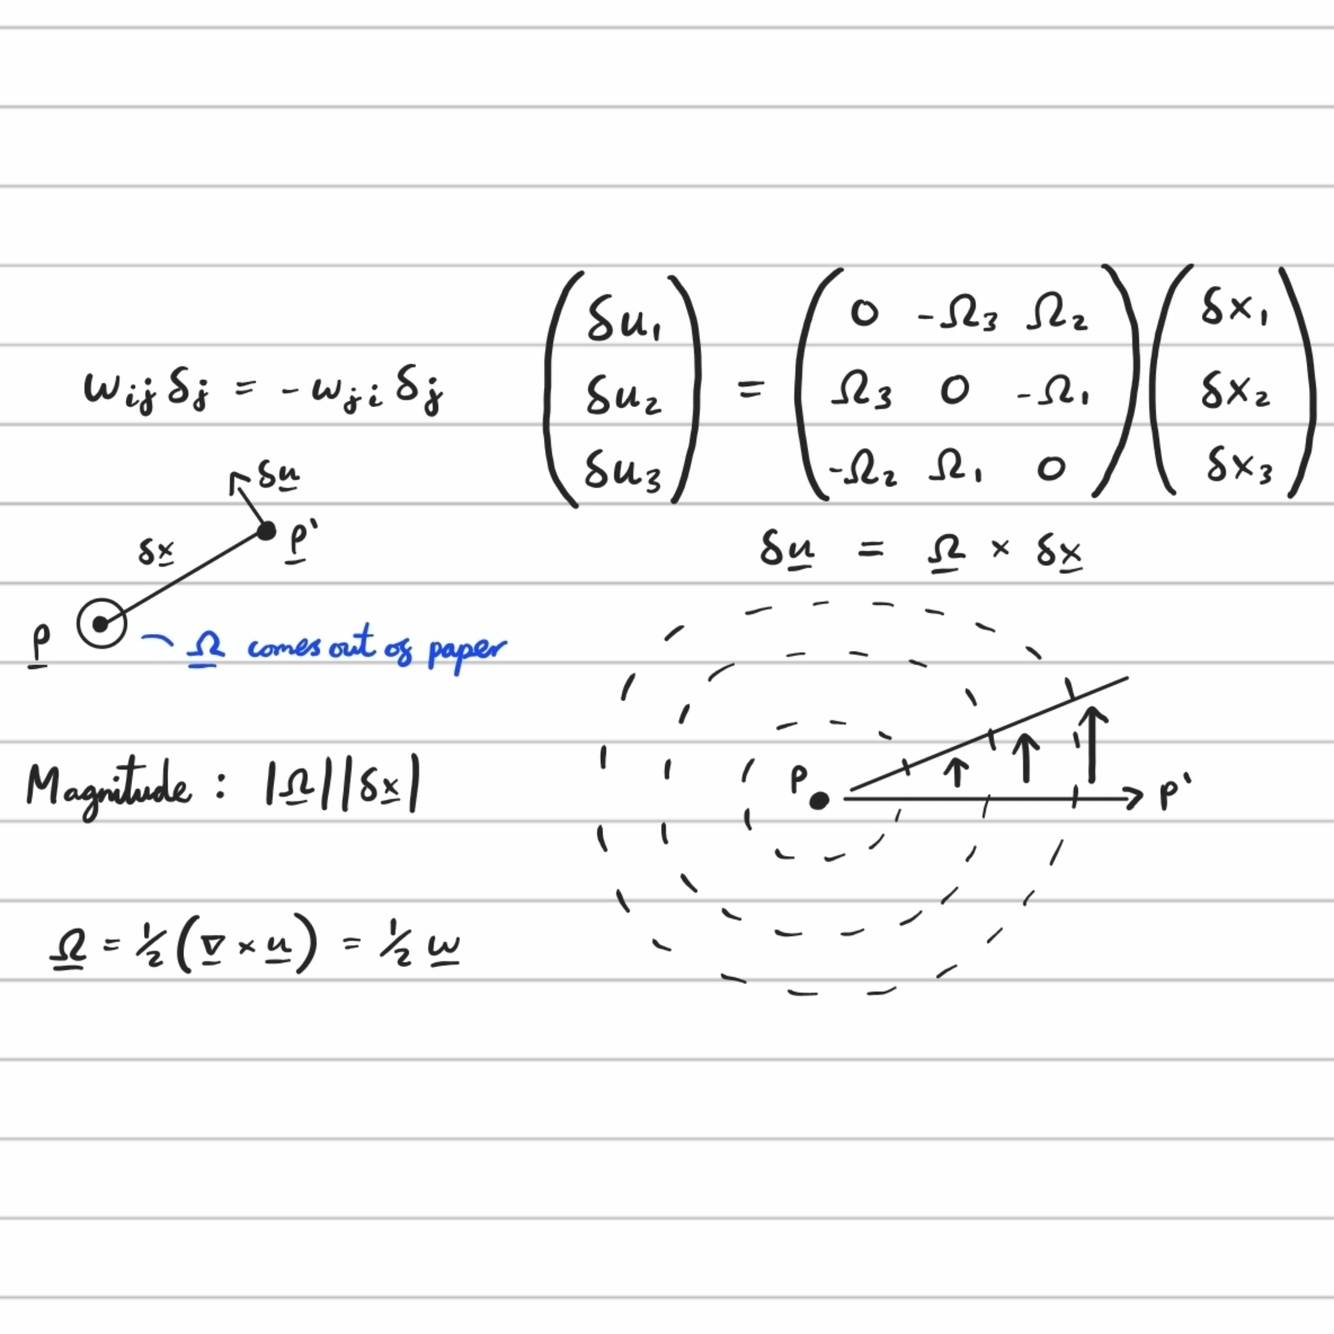 w_ij δ_j = - w_ji δ_j
(δu₁ δu₂ δu₃) = (0 -Ω₃ Ω₂ Ω₃ 0 -Ω₁ -Ω₂ Ω₁ 0) (δx₁ δx₂ δx₃)
δu = Ω × δx
δu
δx
p'
p
Ω comes out of paper
Magnitude : |Ω||δx|
P
P'
Ω = ½(∇ × u) = ½ w